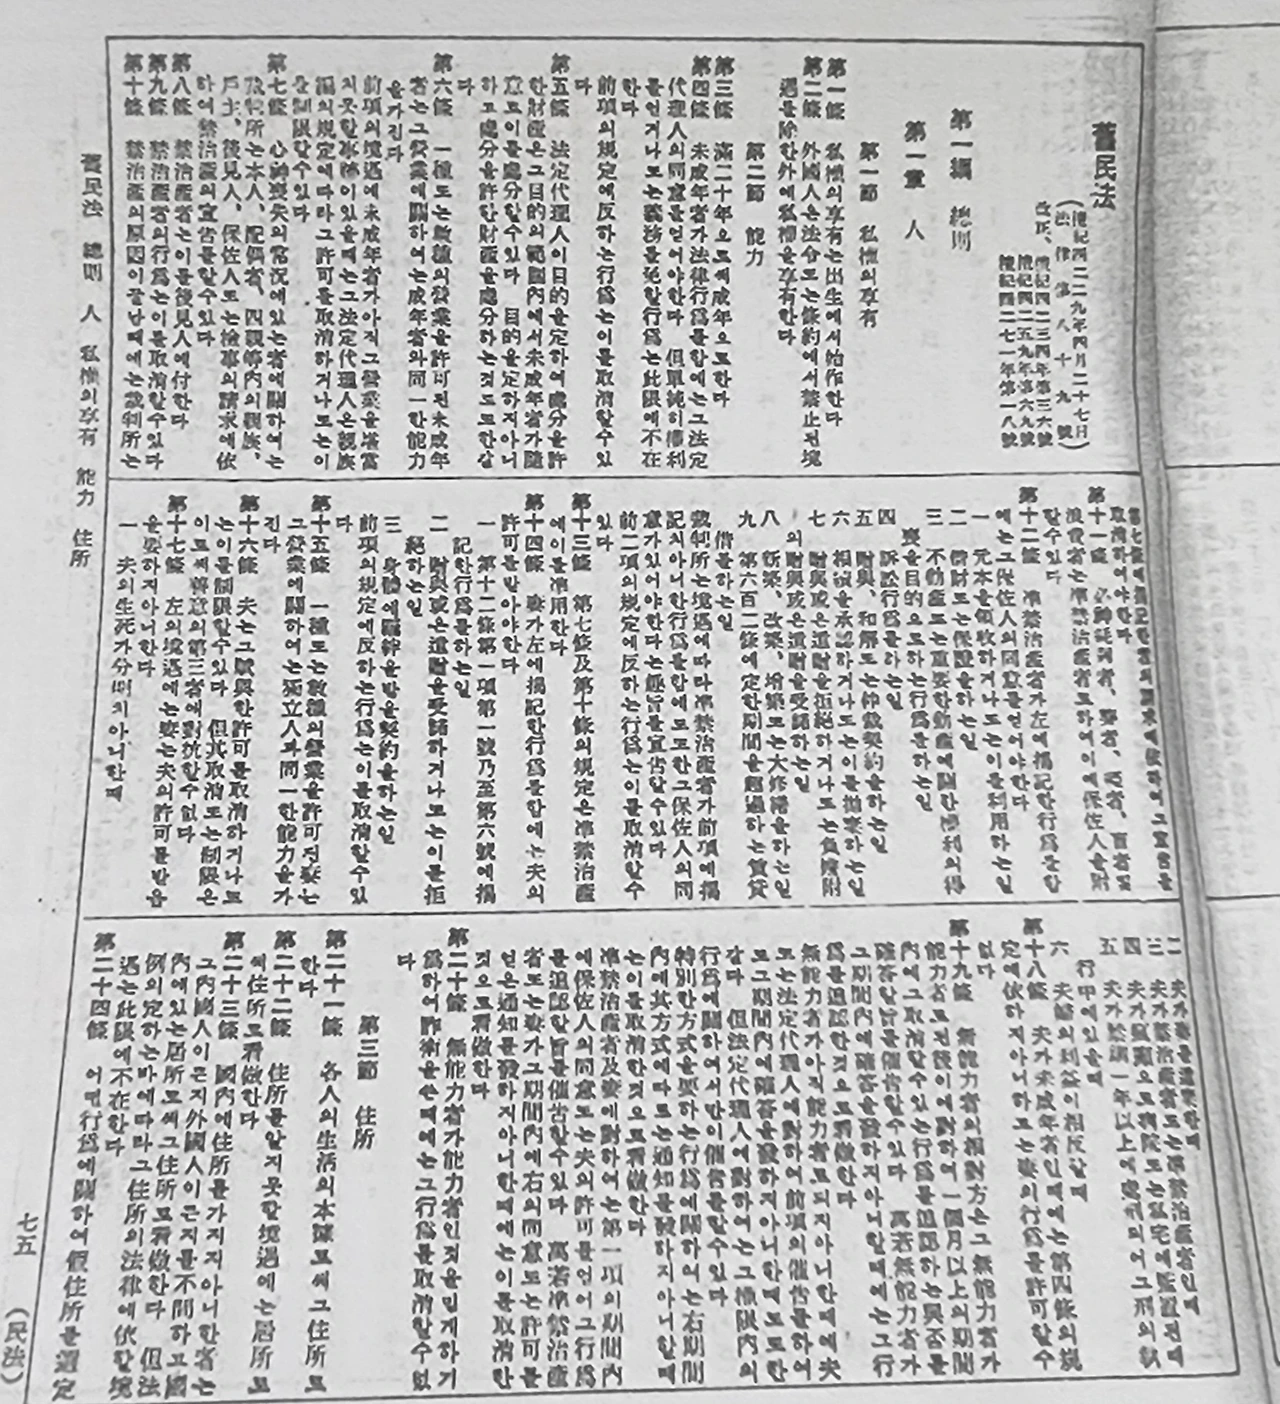 舊民法
(檀紀四二二九年四月二十七日
法律第八十九號)
改正、檀紀四二三四年第三六號
檀紀四二五九年第六九號
檀紀四二七一年第一八號
第一編 總則
第一章 人
第一節 私權의享有
第一條 私權의享有는出生에서始作한다
第二條 外國人은法令또는條約에서禁止된境
遇를除한外에私權을享有한다
第二節 能力
第三條 滿二十年으로써成年으로한다
第四條 未成年者가法律行爲를함에는그法定
代理人의同意를얻어야한다 但單純히權利
를얻거나또는義務를免할行爲는此限에不在
한다
前項의規定에反하는行爲는이를取消할수있
다
第五條 法定代理人이目的을定하여處分을許
한財産은그目的의範圍內에서未成年者가隨
意로이를處分할수있다 目的을定하지아니
하고處分을許한財産을處分하는것도또한같
다
第六條 一種또는數種의營業을許可된未成年
者는그營業에關하여는成年者와同一한能力
을가진다
前項의境遇에未成年者가아직그營業을堪當
치못할事跡이있을때는그法定代理人은親族
編의規定에따라그許可를取消하거나또는이
를制限할수있다
第七條 心神喪失의常況에있는者에關하여는
裁判所는本人、配偶者、四親等內의親族、
戶主、後見人、保佐人또는檢事의請求에依
하여禁治産의宣告를할수있다
第八條 禁治産者는이를後見人에付한다
第九條 禁治産者의行爲는이를取消할수있다
第十條 禁治産의原因이끝날때에는裁判所는
第七條에揭記한者의請求에依하여그宣告를
取消하여야한다
第十一條 心神耗弱者、聾者、啞者、盲者및
浪費者는準禁治産者로하여이에保佐人을附
할수있다
第十二條 準禁治産者가左에揭記한行爲를함
에는그保佐人의同意를얻어야한다
一 元本을領收하거나또는이를利用하는일
二 借財또는保證을하는일
三 不動産또는重要한動産에關한權利의得
喪을目的으로하는行爲를하는일
四 訴訟行爲를하는일
五 贈與、和解또는仲裁契約을하는일
六 相續을承認하거나또는이를抛棄하는일
七 贈與或은遺贈을拒絕하거나또는負擔附
의贈與或은遺贈을受諾하는일
八 新築、改築、增築또는大修繕을하는일
九 第六百二條에定한期間을超過하는賃貸
借를하는일
裁判所는境遇에따라準禁治産者가前項에揭
記치아니한行爲를함에도또한그保佐人의同
意가있어야한다는趣旨를宣告할수있다
前二項의規定에反하는行爲는이를取消할수
있다
第十三條 第七條及第十條의規定은準禁治産
에이를準用한다
第十四條 妻가左에揭記한行爲를함에는夫의
許可를받아야한다
一 第十二條第一項第一號乃至第六號에揭
記한行爲를하는일
二 贈與或은遺贈을受諾하거나또는이를拒
絕하는일
三 身體에羈絆을받을契約을하는일
前項의規定에反하는行爲는이를取消할수있
다
第十五條 一種또는數種의營業을許可된妻는
그營業에關하여는獨立人과同一한能力을가
진다
第十六條 夫는그賦與한許可를取消하거나또
는이를制限할수있다 但其取消또는制限은
이로써善意의第三者에對抗할수없다
第十七條 左의境遇에는妻는夫의許可를받음
을要하지아니한다
一 夫의生死가分明치아니한때
二 夫가妻를遺棄한때
三 夫가禁治産者또는準禁治産者인때
四 夫가瘋癲으로病院또는私宅에監置된때
五 夫가禁錮一年以上에處刑되어그刑의執
行中에있을때
六 夫婦의利益이相反할때
第十八條 夫가未成年者인때에는第四條의規
定에依하지아니하고는妻의行爲를許可할수
없다
第十九條 無能力者의相對方은그無能力者가
能力者로된後이에對하여一個月以上의期間
內에그取消할수있는行爲를追認하는與否를
確答할旨를催告할수있다 萬若無能力者가
그期間內에確答을發하지아니할때에는그行
爲를追認한것으로看做한다
無能力者가아직能力者로되지아니한때에夫
또는法定代理人에對하여前項의催告를하여
도그期間內에確答을發하지아니한때도또한
같다 但法定代理人에對하여는그權限內의
行爲에關하여서만이催告를할수있다
特別한方式을要하는行爲에關하여는右期間
內에其方式에따르는通知를發하지아니할때
는이를取消한것으로看做한다
準禁治産者及妻에對하여는第一項의期間內
에保佐人의同意또는夫의許可를얻어그行爲
를追認할旨를催告할수있다 萬若準禁治産
者또는妻가그期間內에右의同意또는許可를
얻은通知를發하지아니한때에는이를取消한
것으로看做한다
第二十條 無能力者가能力者인것을믿게하기
爲하여詐術을쓴때에는그行爲를取消할수없
다
第三節 住所
第二十一條 各人의生活의本據로써그住所로
한다
第二十二條 住所를알지못할境遇에는居所로
써住所로看做한다
第二十三條 國內에住所를가지지아니한者는
그內國人이든지外國人이든지를不問하고國
內에있는居所로써그住所로看做한다 但法
例의定하는바에따라그住所의法律에依할境
遇는此限에不在한다
第二十四條 어떤行爲에關하여假住所를選定
舊民法 總則 人 私權의享有 能力 住所
七五 (民法)